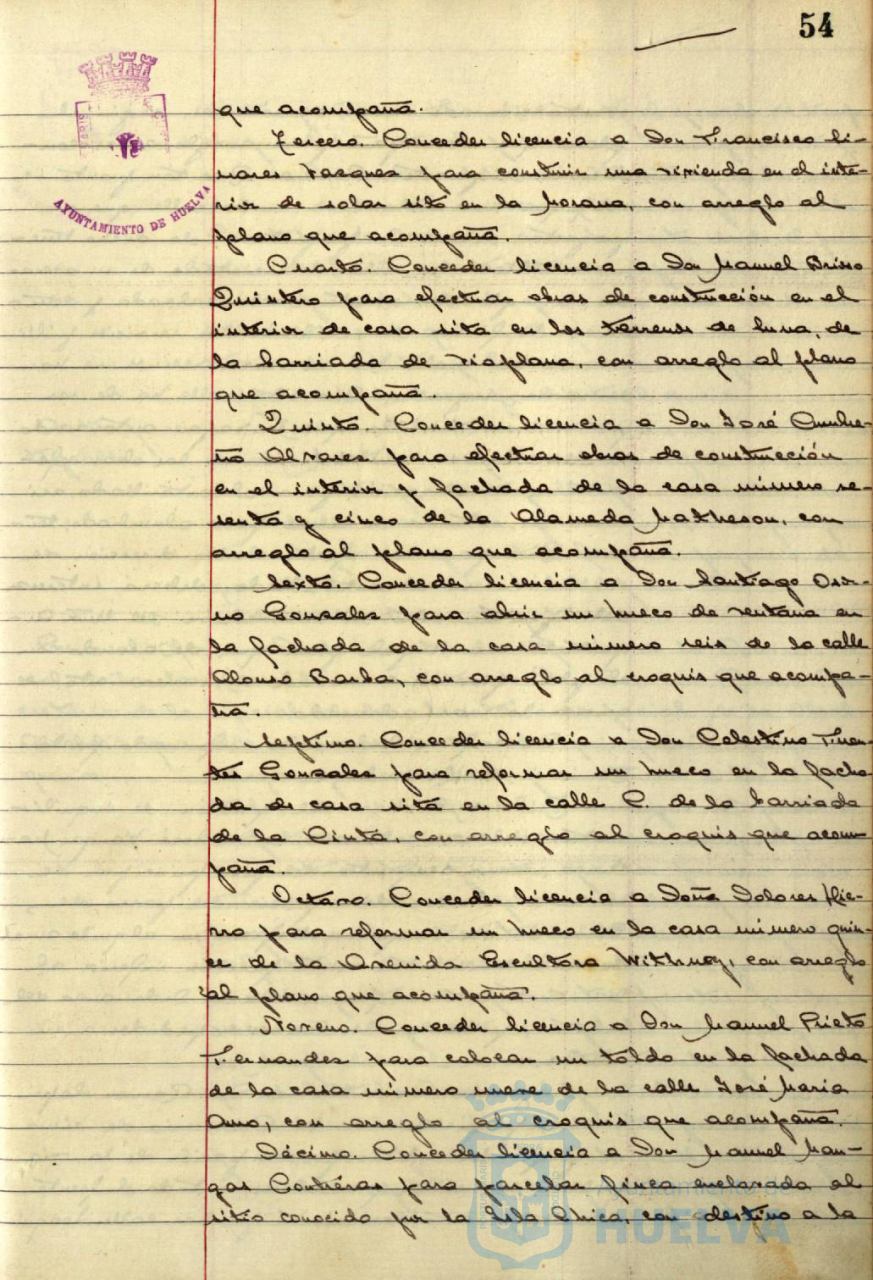 54
AYUNTAMIENTO DE HUELVA
que acompaña.
Tercero. Conceder licencia a Don Francisco Li-
nares Vasques para construir una vivienda en el inte-
rior de solar sito en la Morana, con arreglo al
plano que acompaña.
Cuarto. Conceder licencia a Don Manuel
Quintero para efectuar obras de construcción en el
interior de casa sita en los terrenos de Luna, de
la barriada de Viaplana, con arreglo al plano
que acompaña.
Quinto. Conceder licencia a Don José Cumbre-
ño Alvares para efectuar obras de construcción
en el interior y fachada de la casa número se-
senta y cinco de la Alameda Matheson, con
arreglo al plano que acompaña.
Sexto. Conceder licencia a Don Santiago Osor-
no Gonsales para abrir un hueco de ventana en
la fachada de la casa número seis de la calle
Alonso Barba, con arreglo al croquis que acompa-
ña.
Septimo. Conceder licencia a Don Celestino Fuen-
tes Gonsales para reformar un hueco en la facha
da de casa sita en la calle C. de la barriada
de la Cinta, con arreglo al croquis que acom-
paña.
Octavo. Conceder licencia a Doña Dolores Hie-
rro para reformar un hueco en la casa número quin-
ce de la Avenida Escultora Withney, con arreglo
al plano que acompaña.
Noveno. Conceder licencia a Don Manuel Prieto
Fernandes para colocar un toldo en la fachada
de la casa número nueve de la calle José Maria
Amo, con arreglo al croquis que acompaña.
Décimo. Conceder licencia a Don Manuel Man-
gas Contréras para parcelar finca enclavada al
sitio conocido por la Isla Chica, con destino a la
Ayuntamiento de
HUELVA